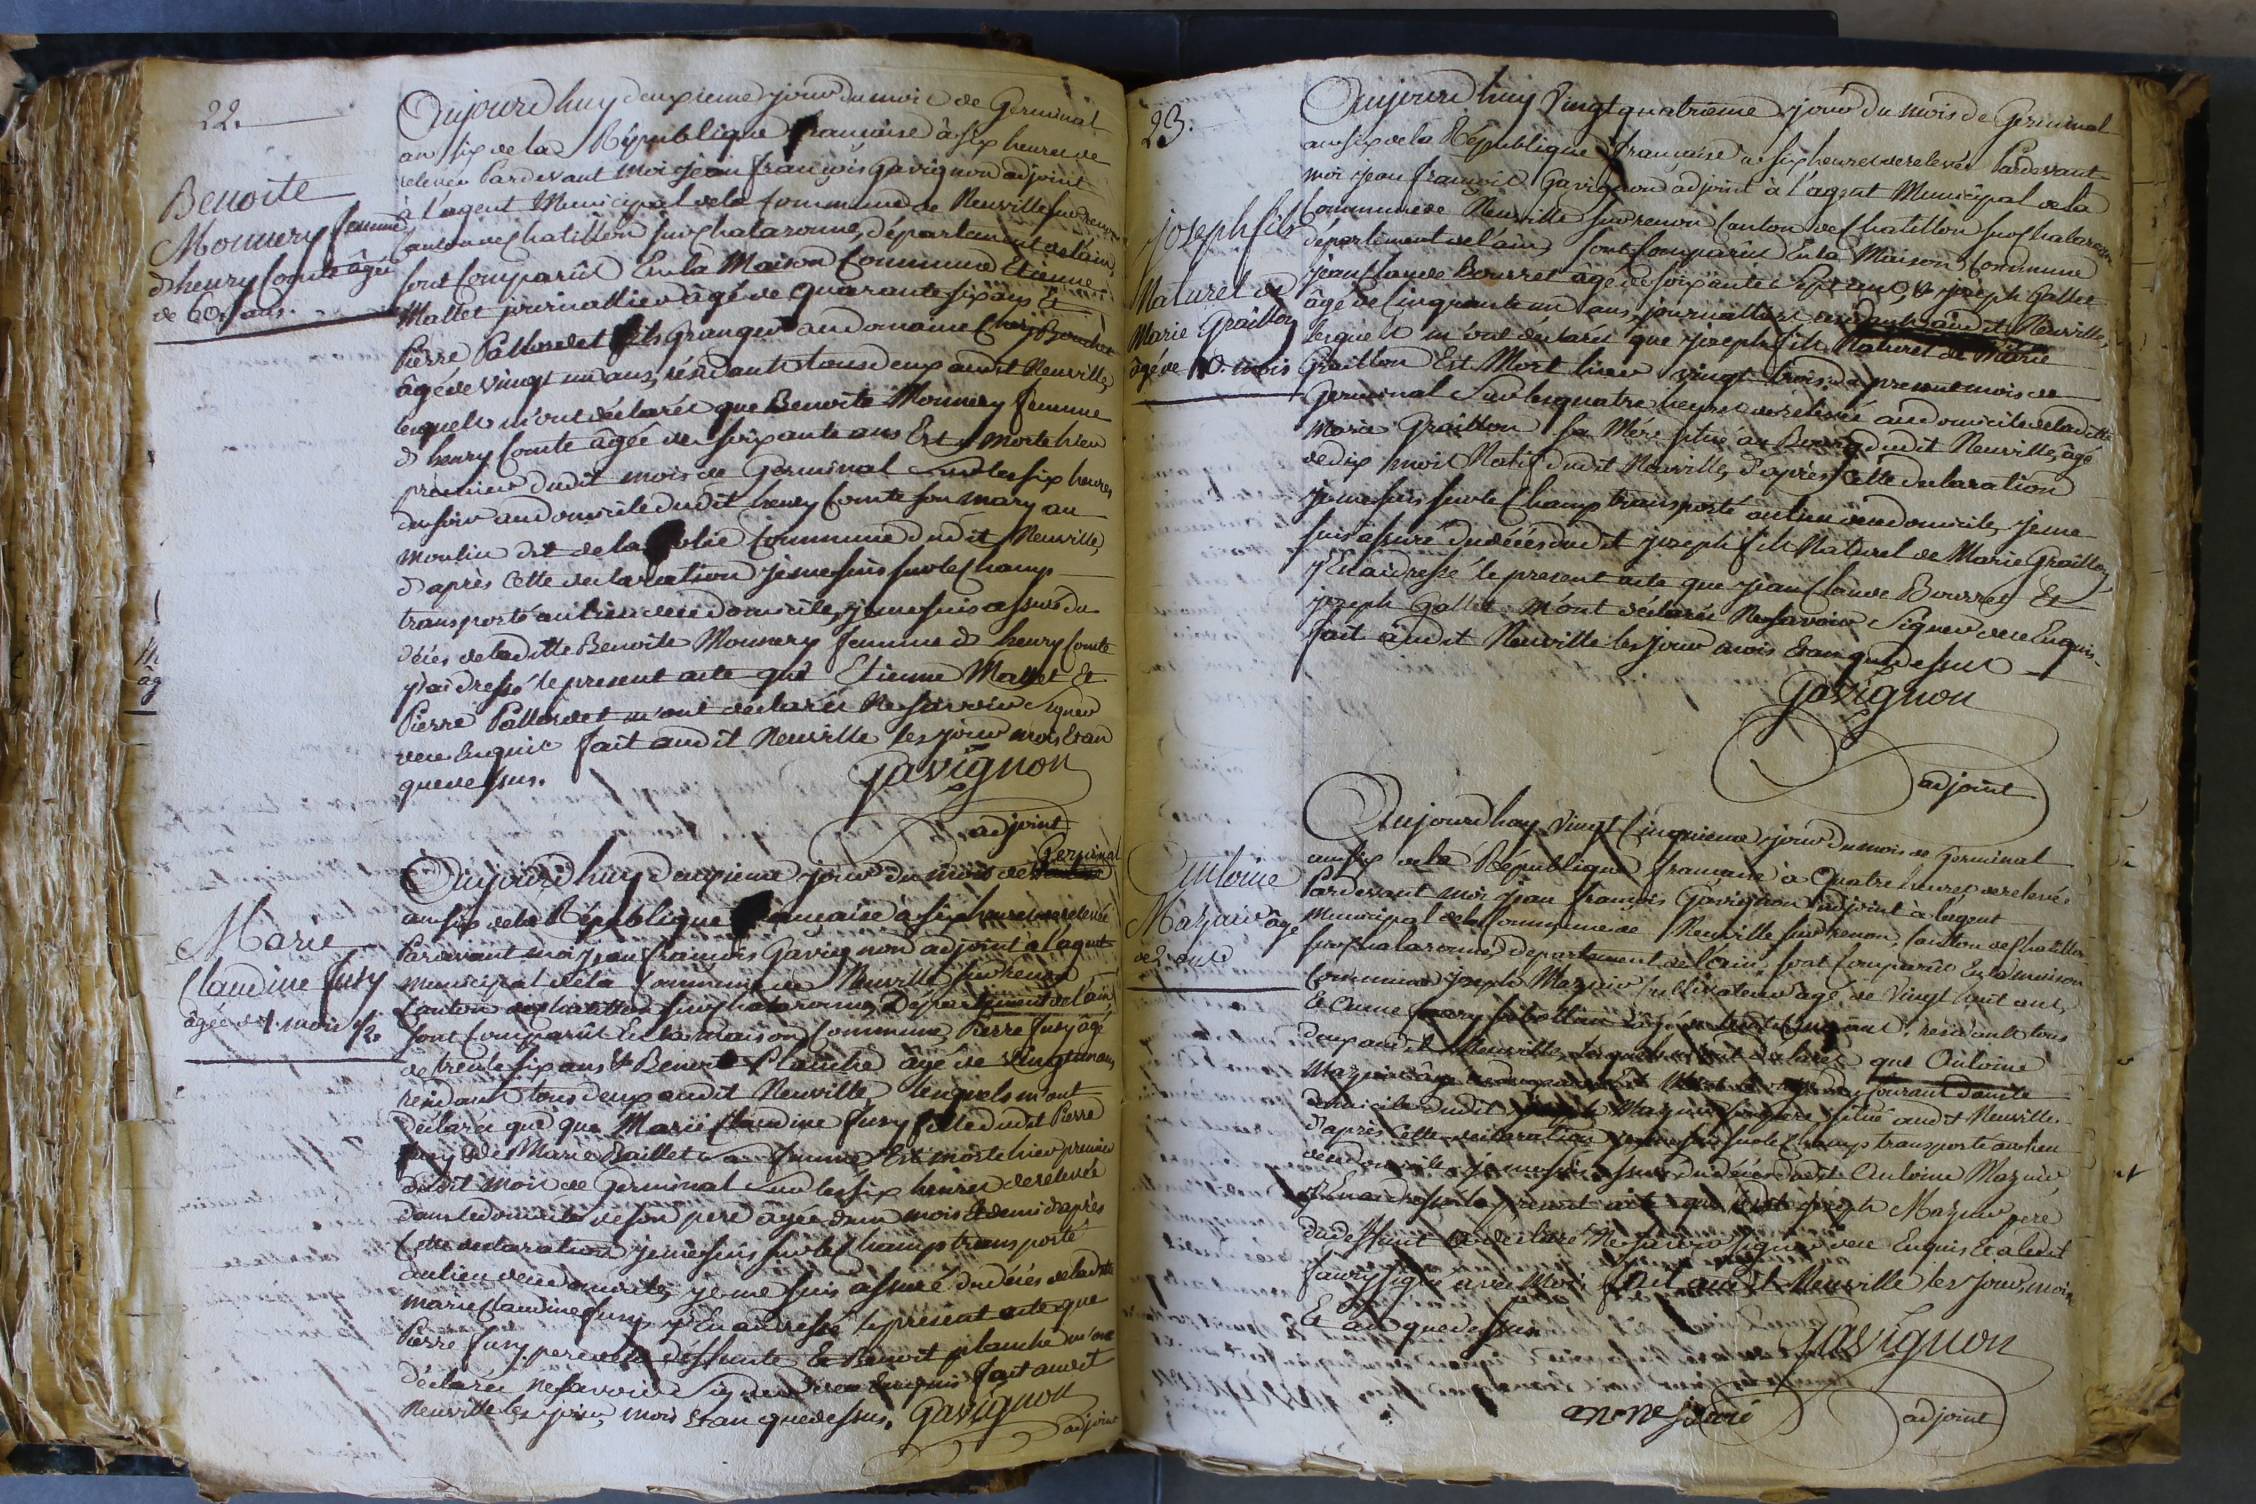 22.
Benoite
Monnery femme
d henry Comte âgée
de 60. ans.
Aujourd huy deuxieme jour du mois de Germinal
an six de la République francaise à six heures de
relevée Pardevant moi jean françois Gavignon adjoint
à l'agent Municipal de la Commune de Neuville sur renon
Canton de Chatillon sur Chalaronne, département de l'ain,
sont Comparûs En la Maison Commune Etienne
Mallet journallier âgé de quarante six ans Et
Pierre Pallordet fils Granger au domaine
âgé de vingt un ans, résidants tous deux audit Neuville,
lesquels m'ont déclarés que Benoite Monnery femme
d henry Comte âgée de soixante ans Est morte hier
premier dudit mois de Germinal sur les six heures
du soir au domicile dudit henry Comte son mary au
moulin dit de la folie Commune dudit Neuville,
d'après Cette declaration je me suis sur le Champ
transporté au lieu de ce domicile, je me suis assuré du
décés de laditte Benoite Monnery femme d henry Comte
j'ai dressé le present acte que Etienne Mallet Et
Pierre Pallordet m'ont déclarés Ne savoir Signer
de ce Enquis fait audit Neuville les jour mois Et an
que dessus.
Gavignon
adjoint
Marie
Claudine Jusy
âgée d'1. mois 1/2.
Germinal
Aujourd huy deuxieme jour du mois de
an six de la République francaise à six heures de relevée
Pardevant moi jean francois Gavignon adjoint à l'agent
municipal de la Commune de Neuville sur renon
Canton de Chatillon sur Chalaronne, Département de l'ain
sont Comparûs En la maison Commune Pierre Jusy âgé
de trente six ans & Benoit Planche âgé de vingt un ans
residants tous deux audit Neuville lesquels m'ont
déclarés que que Marie Claudine Jusy fille dudit Pierre
Jusy & de Marie Baillet sa femme Est morte hier premier
dudit mois de Germinal sur les six heures de relevée
dans le domicile de son pere âgée d'un mois & demi d'après
Cette declaration je me suis sur le Champ transporté
au lieu de ce domicile, je me suis assuré du décés de laditte
marie Claudine Jusy j'En ai dressé le présent acte que
Pierre Jusy pere de la deffunte & Benoit planche m'ont
déclarés ne savoir Signer de ce Enquis fait audit
Neuville les jour, mois Et an que dessus. Gavignon
adjoint
23.
joseph fils
Naturel de
Marie Graillon
âgé de 10. mois
Aujourd huy Vingt quatrieme jour du mois de Germinal
an six de la République francaise à six heures de relevée Pardevant
moi jean francois Gavignon adjoint à l'agent Municipal de la
Commune de Neuville sur renon Canton de Chatillon sur Chalaronne
département de l'ain, sont Comparûs En la Maison Commune
jean Claude Bourret âgé de soixante & sept ans, & joseph Gallet
âgé de Cinquante un ans, journalliers residants audit Neuville,
lesquels m'ont declarés que joseph fils Naturel de Marie
Graillon Est Mort hier vingt trois du present mois de
Germinal Sur les quatre heures de relevée au domicile de laditte
Marie Graillon sa Mére situé au Bourg dudit Neuville, âgé
de dix mois Natif dudit Neuville, d'après Cette declaration
je me suis sur le Champ transporté au lieu de ce domicile, je me
suis assuré du décés dudit joseph fils Naturel de Marie Graillon,
j'En ai dressé le present acte que jean Claude Bourret Et
joseph Gallet m'ont déclarés Ne savoir Signer de ce Enquis
fait audit Neuville les jour mois Et an que dessus
Gavignon
adjoint
Antoine
Mazuir âgé
de 2. ans
Aujourd huy Vingt Cinquieme jour du mois de Germinal
an six de la République francaise à Quatre heures de relevée
Pardevant moi jean françois Gavignon adjoint à l'agent
Municipal de la Commune de Neuville sur renon, Canton de Chatillon
sur Chalaronne, département de l'ain, sont Comparûs En la maison
Commune joseph Mazuir Cultivateur âgé de Vingt huit ans,
résidants tous
deux audit Neuville, lesquels m'ont déclarés que Antoine
Mazuir courant dans le
domicile dudit joseph Mazuir son pere situé audit Neuville.
d'après Cette declaration je me suis sur le Champ transporté au lieu
de ce domicile, je me suis assuré du décés dudit Antoine Mazuir,
j'En ai dressé le present acte que ledit joseph Mazuir pere
du deffunt a déclaré Ne savoir Signer de ce Enquis Et a ledit
faury signé avec moi fait audit Neuville les jour, mois
Et an que dessus
Gavignon
adjoint